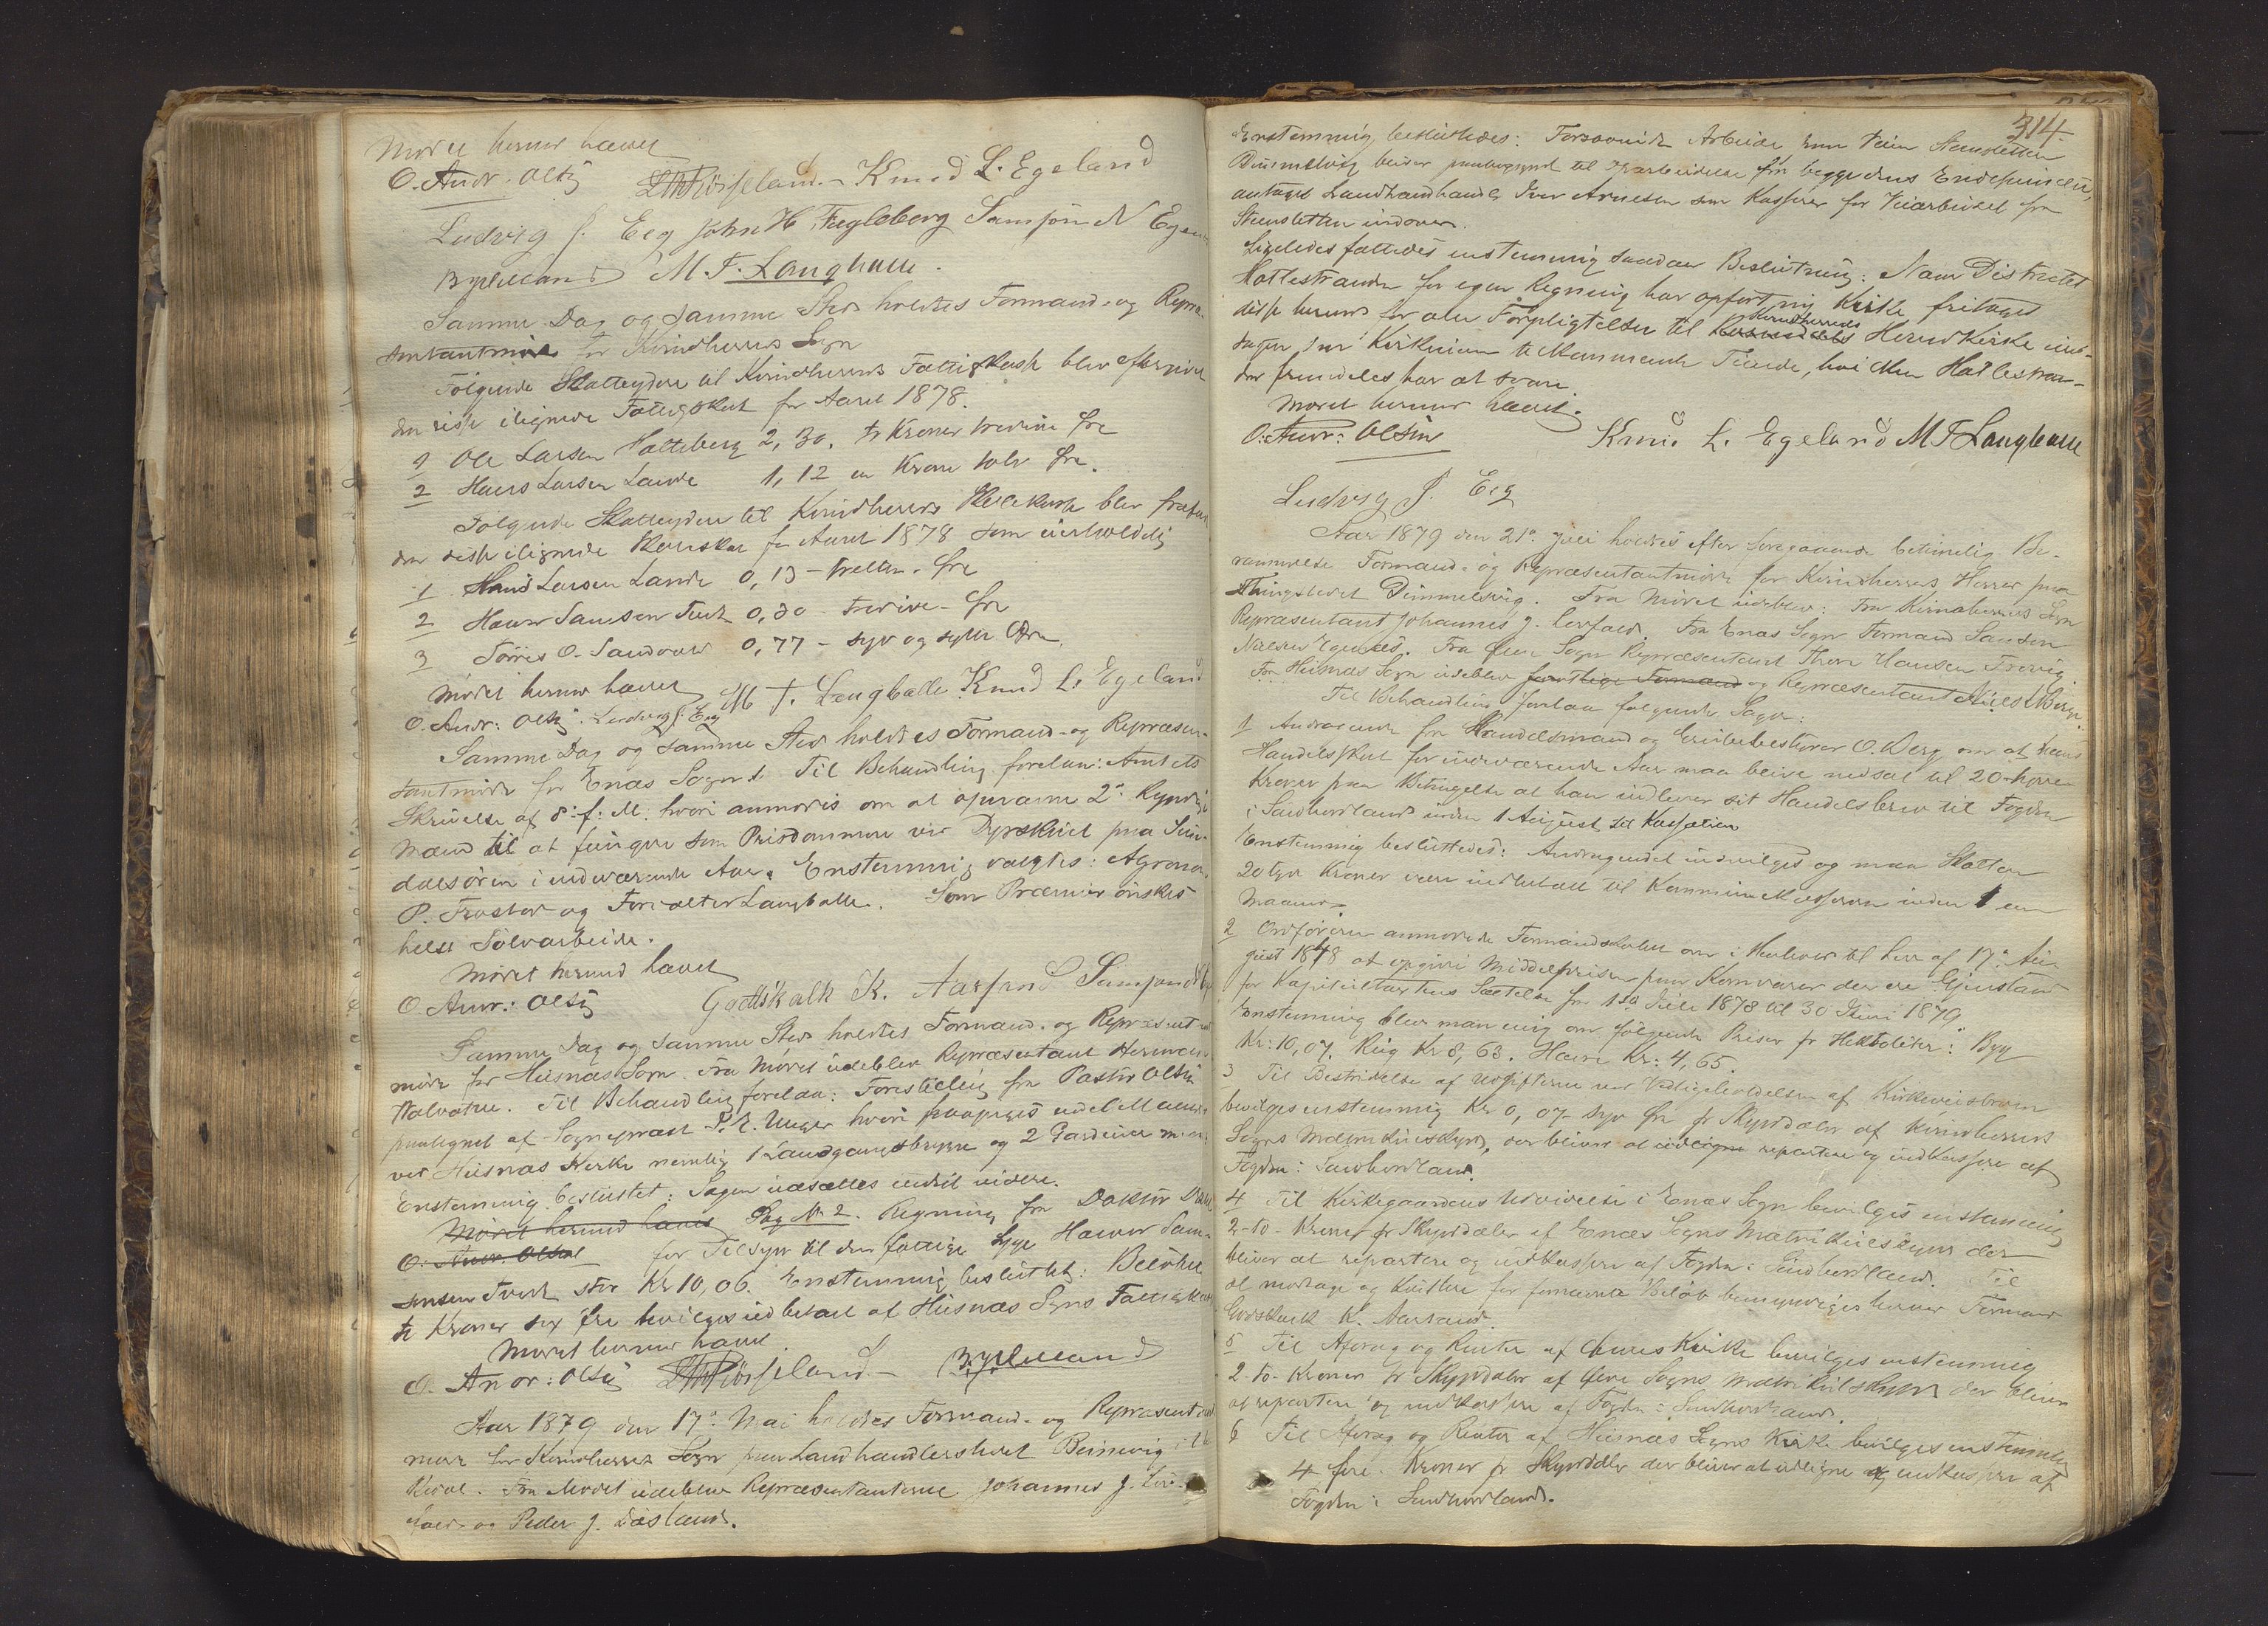 Mødet hermed hævet
O. Andr. Olsen Knud L. Egeland
Ludvig J. Eeg John H. Fugleberg Samson N Egen
M. T. Langballe.
Samme Dag og samme Sted holdtes Formand- og Repræ-
sentantmøde for Kvindherreds Sogn
Følgende Skatteydere til Kvindherreds Fattigkasse blev eftergivet
den disse ilignede Fattigskat for Aaret 1878.
1 Ole Larsen Hatteberg 2,30. to Kroner tredive Øre
2 Hans Larsen Lande 1,12 en Krone tolv Øre.
Følgende Skatteydere til Kvindherreds Skolekasse blev
den disse ilignede Skoleskat for Aaret 1878 som uerholdelig
1 Hans Larsen Lande 0,13 – tretten Øre
2 Haavor Samsen Tvedt 0,30 tredive Øre
3 Tørris O. Sandvold 0,77 – syv og sytti Øre.
Mødet hermed hævet
O. Andr: Olsen. Ludvig J. Eeg M T. Langballe Knud L. Egeland
Samme Dag og samme Sted holdtes Formand- og Repræsen-
tantmøde for Enæs Sogn. Til Behandling forelaa: Amtets
Skrivelse af 8de f: M. hvori anmodes om at opnævne 2de Kyndige
Mænd til at fungere som Prisdommere ved Dyrskuet paa Sun-
dalsøren i indeværende Aar. Enstemmig valgtes: Agronom
P. Frostad og Forvalter Langballe. Som Præmier ønskes
helst Sølvarbeide.
Mødet hermed hævet
O. Andr: Olsen Godtskalk K. Aarsand Samson
Samme Dag og samme Sted holdtes Formand- og Repræsentant
møde for Husnæs Sogn. Fra Mødet udeblev Repræsentant Herman
Valvatne. Til Behandling forelaa: Forestilling fra Pastor Olsen
paategnet af Sogneprest S. E. Unger hvori paapeges
ved Husnæs Kirke nemlig 1 Landgangsbrygge og 2 Gardiner
Enstemmig besluttet: Sagen udsættes indtil videre.
Mødet hermed hævet Sag No 2. Regning fra Doktor
O. Andr. Olsen for Tilsyn til den fattige Syge Haavor Sam-
sonsen Tvedt stor Kr 10,06. Enstemmig besluttet: Beløbet
ti Kroner sex Øre bevilges udbetalt af Husnæs Sogns Fattigkasse
Mødet hermed hævet.
O. Andr: Olsen
Aar 1879 den 17de Mai holdtes Formand- og Repræsentant
møde for Kvindherreds Sogn paa Landhandlerstedet
Fra Mødet udeblev Repræsentanterne Johannes J.
og Peder J. Dæsland.
314
Enstemmig besluttedes: Forsaavidt Arbeide paa Veien
Dimmelsvig bliver paabegyndt til Oparbeidelse fra begge dens Endepuncter,
antages Landhandler Iver Arnesen som Kasserer for Veiarbeidet fra
indover.
Ligeledes fattedes enstemmig saadan Beslutning: Naar Districtet
Hatlestranden for egen Regning har opført ny Kirke fritages
disse herved for alle Forpligtelser til Kvindherreds Herreds Kirke und-
tagen den Kirkeeieren tilkommende Tiende, hvilken Hatlestran-
den fremdeles har at svare.
Mødet hermed hævet.
O. Andr: Olsen Knud L. Egeland M T Langballe
Ludvig J. Eeg
Aar 1879 den 21de Juli holdtes efter foregaaende betimelig Be-
rammelse Formand- og Repræsentantmøde for Kvindherreds Herred paa
Thingstedet Dimmelsvig. Fra Mødet udeblev: Fra Kvindherreds Sogn
Repræsentant Johannes J. Fra Enæs Sogn Formand Samson
Nielsen Egenes. Fra Ølve Sogn Repræsentant Thore Hansen Trovig.
Fra Husnæs Sogn udeblev samtlige Formænd og Repræsentant
Til Behandling forelaa følgende Sager:
1 Andragende fra Handelsmand og Grubebestyrer O. Berg om at hans
Handelsskat for indeværende Aar maa blive nedsat til 20 tyve
Kroner paa Betingelse at han indlever sit Handelsbrev til Fogden
i Sundhordland inden 1 August til Kassation
Enstemmig besluttedes: Andragendet indvilges og maa Skatten
20 tyve Kroner være indbetalt til Kommunekassereren inden 1 en
Maaned.
2 Ordføreren anmodede Formandskabet om i Henhold til Lov af 17de Au-
gust 1848 at opgive Middelprisen paa Kornvarer der ere Gjenstand
for Kapitelstaxtens Sættelse fra 1ste Juli 1878 til 30 Juni 1879
Enstemmig blev man enig om følgende Priser pr Hektoliter: Byg
Kr: 10,07. Rug Kr 8,63. Havre Kr: 4,65.
3 Til Bestridelse af Udgifterne ved Vedligeholdelsen af
bevilges enstemmig Kr 0,07 syv Øre pr Skyddaler af Kvindherreds
Sogns Matrikulskyld, der bliver at udligne repartere og indkassere af
Fogden i Sundhordland.
4 Til Kirkegaardens Udvidelse i Enæs Sogn bevilges enstemmig
2-to- Kroner pr Skyddaler af Enæs Sogns Matrikulskyld der
bliver at repartere og indkassere af Fogden i Sundhordland. Til
at modtage og kvittere for fornævnte Beløb bemyndiges herved Formand
Godskalk K. Aarsand.
5 Til Afdrag og Renter af Ølves Kirke bevilges enstemmig
2-to- Kroner pr Skyddaler af Ølve Sogns Matrikulskyld der bliver
at repartere og indkassere af Fogden i Sundhordland.
6 Til Afdrag og Renter af Husnæs Sogns Kirke bevilges enstemmig
4 fire Kroner pr Skyddaler der bliver at udligne og indkassere af
Fogden i Sundhordland.